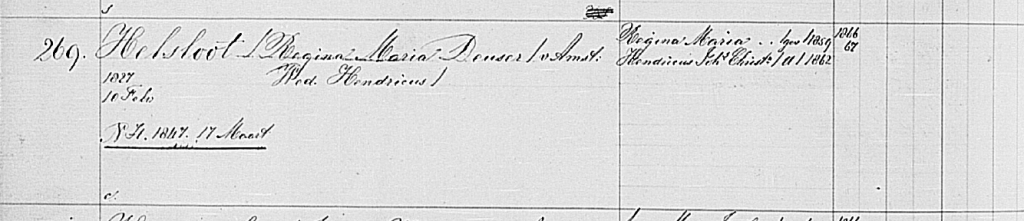 269. Helsloot / Regina Maria Denser / v Amst:
Wed. Hendricus /
1827
10 Feb
N H. 1847. 17 Maart
d.
Regina Maria . . 1859
Hendricus Johs Christs / a / 1862
1866
67